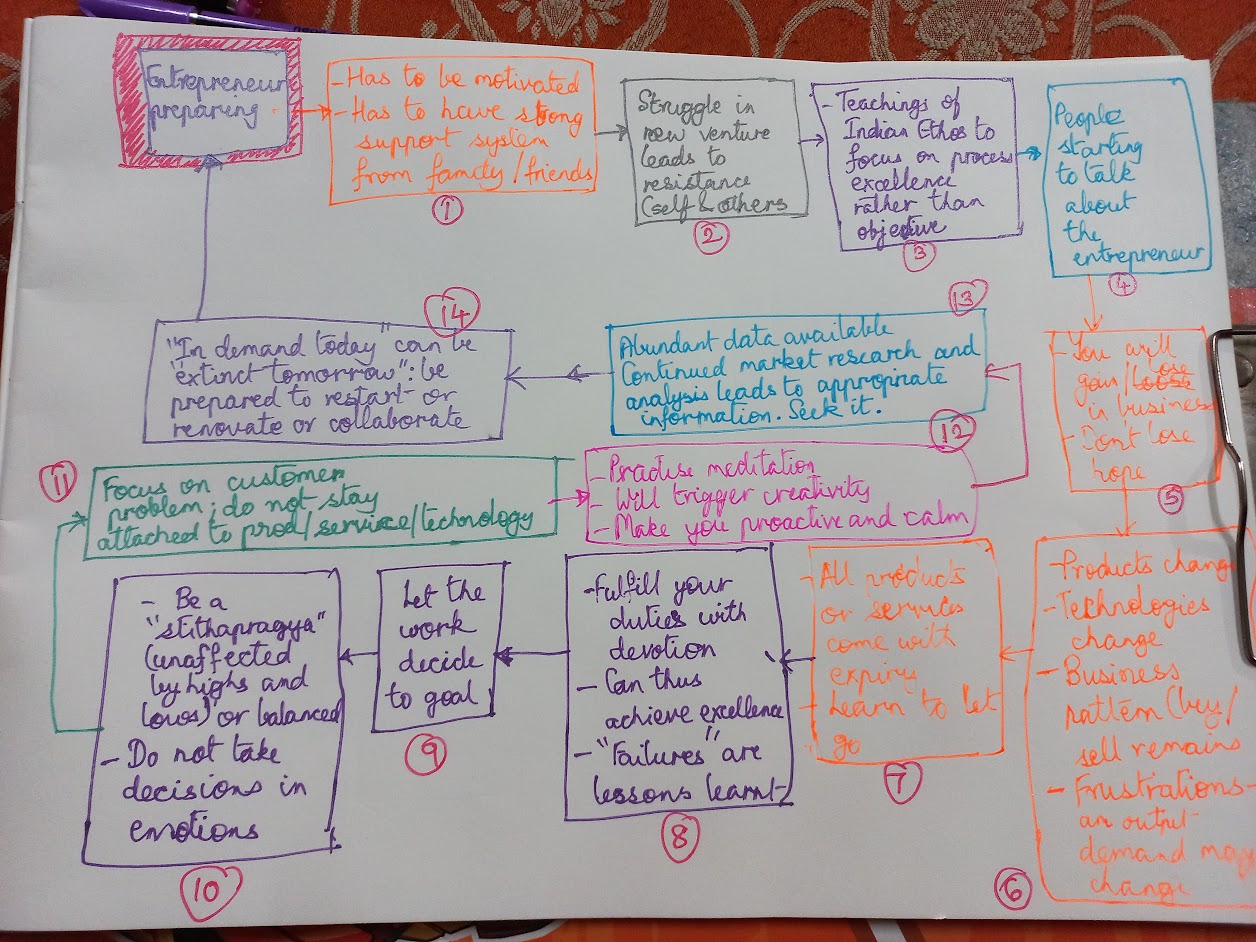 Entrepreneur
preparing
- Has to be motivated
- Has to have strong
support system
from family/friends
1
Struggle in
new venture
leads to
resistance
(self & others
2
- Teachings of
Indian Ethos to
focus on process
excellence
rather than
objective
3
People
starting
to talk
about
the
entrepreneur
4
- You will
gain/lose
in business
- Don't lose
hope
5
- Products change
- Technologies
change
- Business
pattern (buy/
sell remains
- Frustrations -
an output -
demand may
change
6
- All products
or services
come with
expiry
- Learn to let
go
7
- Fulfill your
duties with
devotion
- Can thus
achieve excellence
- "Failures" are
lessons learnt
8
Let the
work
decide
to goal
9
- Be a
"stithapragya"
(unaffected
by highs and
lows) or balanced
- Do not take
decisions in
emotions
10
11
Focus on customer
problem; do not stay
attached to prod/service/technology
12
- Practise meditation
- Will trigger creativity
- Make you proactive and calm
13
Abundant data available
Continued market research and
analysis leads to appropriate
information. Seek it.
14
"In demand today" can be
"extinct tomorrow": be
prepared to restart or
renovate or collaborate